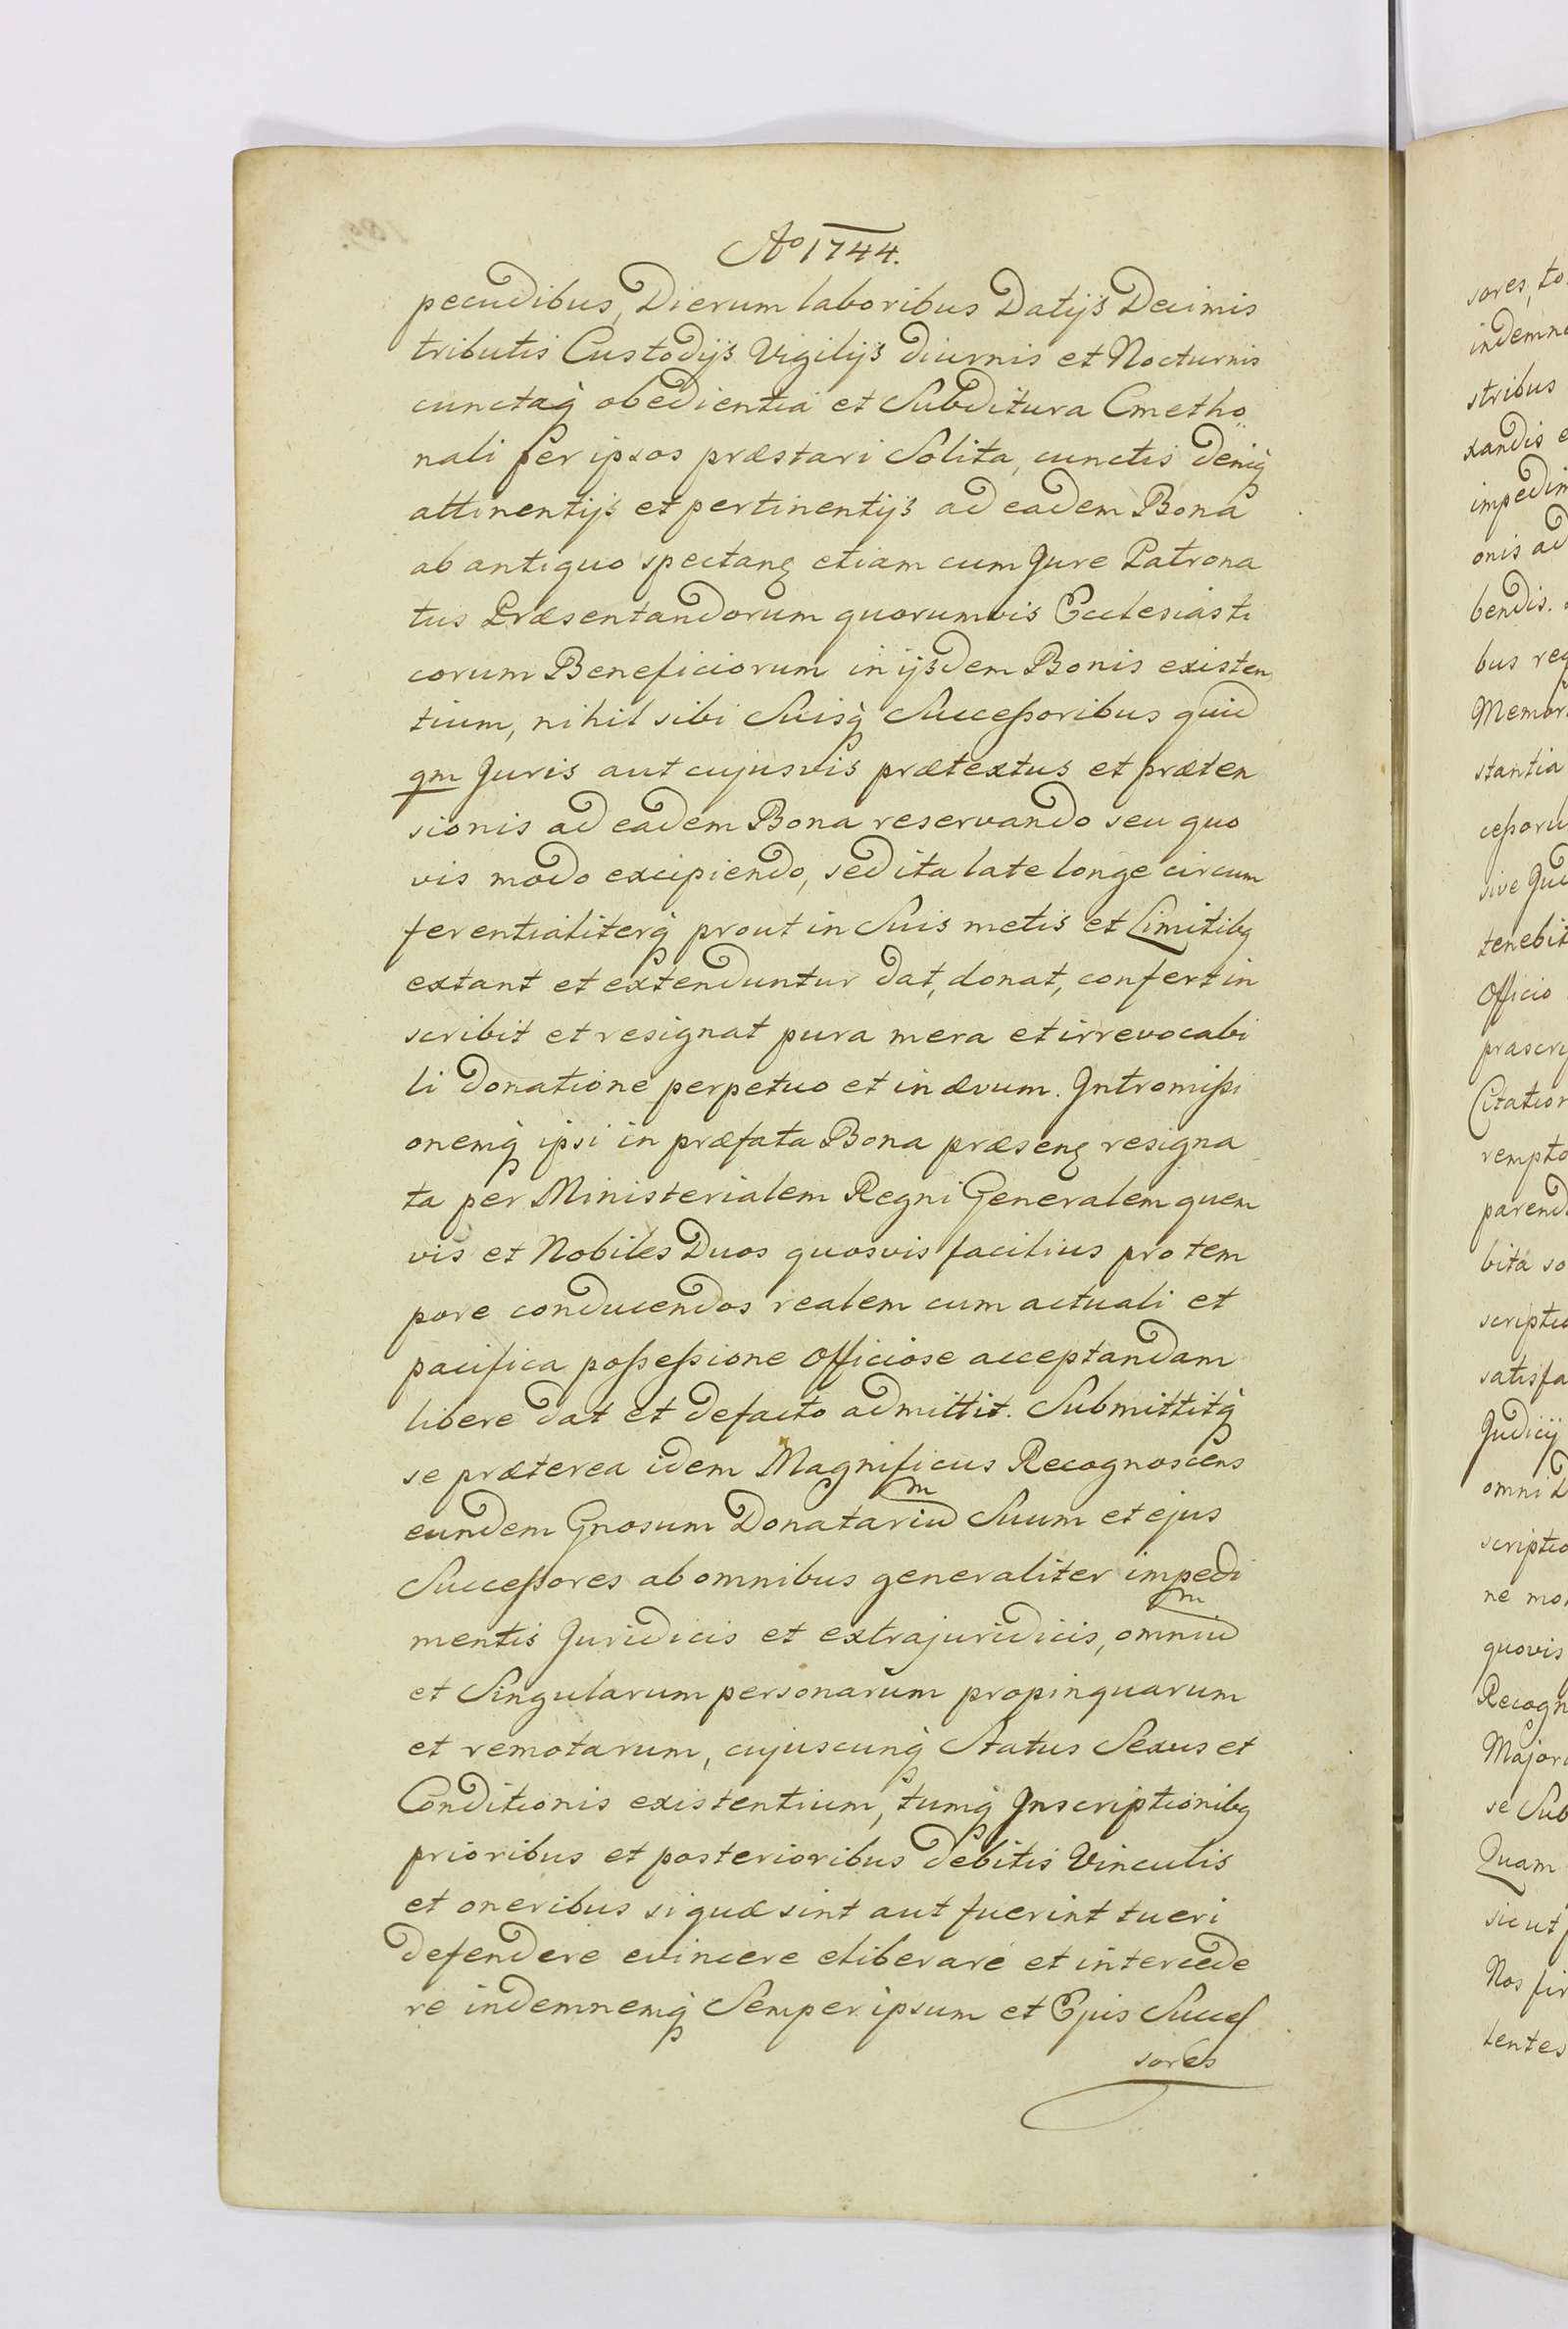 Aº 1744.
pecudibus, Dierum laboribus Datijs Decimis
tributis Custodijs Vigilijs diurnis et Nocturnis
cunctaq́ obedientia et Subditura Cmetho„
nali per ipsos præstari Solita, cunctis deniq́
attinentijs et pertinentijs ad eadem Bona
ab antiquo spectanꝫ etiam cum Jure Patrona
tus Præsentandorum quorumvis Ecclesiasti
corum Beneficiorum in ijsdem Bonis existen
tium, nihil sibi Suisq́ Succeßoribus quid
qm Juris aut cujusvis prætextus et præten
sionis ad eadem Bona reservando seu quo
vis modo excipiendo, sed ita late longe circum
ferentialiterq́ prout in Suis metis et Limitibꝫ
extant et extenduntur dat, donat, confert in
scribit et resignat pura mera et irrevocabi
li donatione perpetuo et in ævum. Intromißi
onemq́ ipsi in præfata Bona præsenꝫ resigna
ta per Ministerialem Regni Generalem quem
vis et Nobiles Duos quosvis facilius pro tem
pore conducendos realem cum actuali et
pacifica poßeßione Officiose acceptandam
libere dat et defacto admittit. Submittitq́
se præterea idem Magnificus Recognoscens
eundem Gnosum Donatariu͞m Suum et ejus
Succeßores ab omnibus generaliter impedi
mentis Juridicis et extrajuridicis, omniu͞m
et Singularum personarum propinquarum
et remotarum, cujuscunq́ Status Sexus et
Conditionis existentium, tumq́ Inscriptionibꝫ
prioribus et posterioribus debitis Vinculis
et oneribus si quæ sint aut fuerint tueri
defendere evincere eliberare et intercede
re indemnemq́ Semper ipsum et Ejus Succes
sores
sores, to
indemne
stribus
xandis e
impedim
onis ad
bendis.
bus req
Memor
stantia
ceßoru
sive Jud
tenebit
Officio
præscri
Citation
rempto
parend
bita so
scriptio
satisfa
Judicij
omni d
scriptio
ne mo
quovis
Recogn
Majori
se Sub
Quam
sicut p
Nos fir
tentes